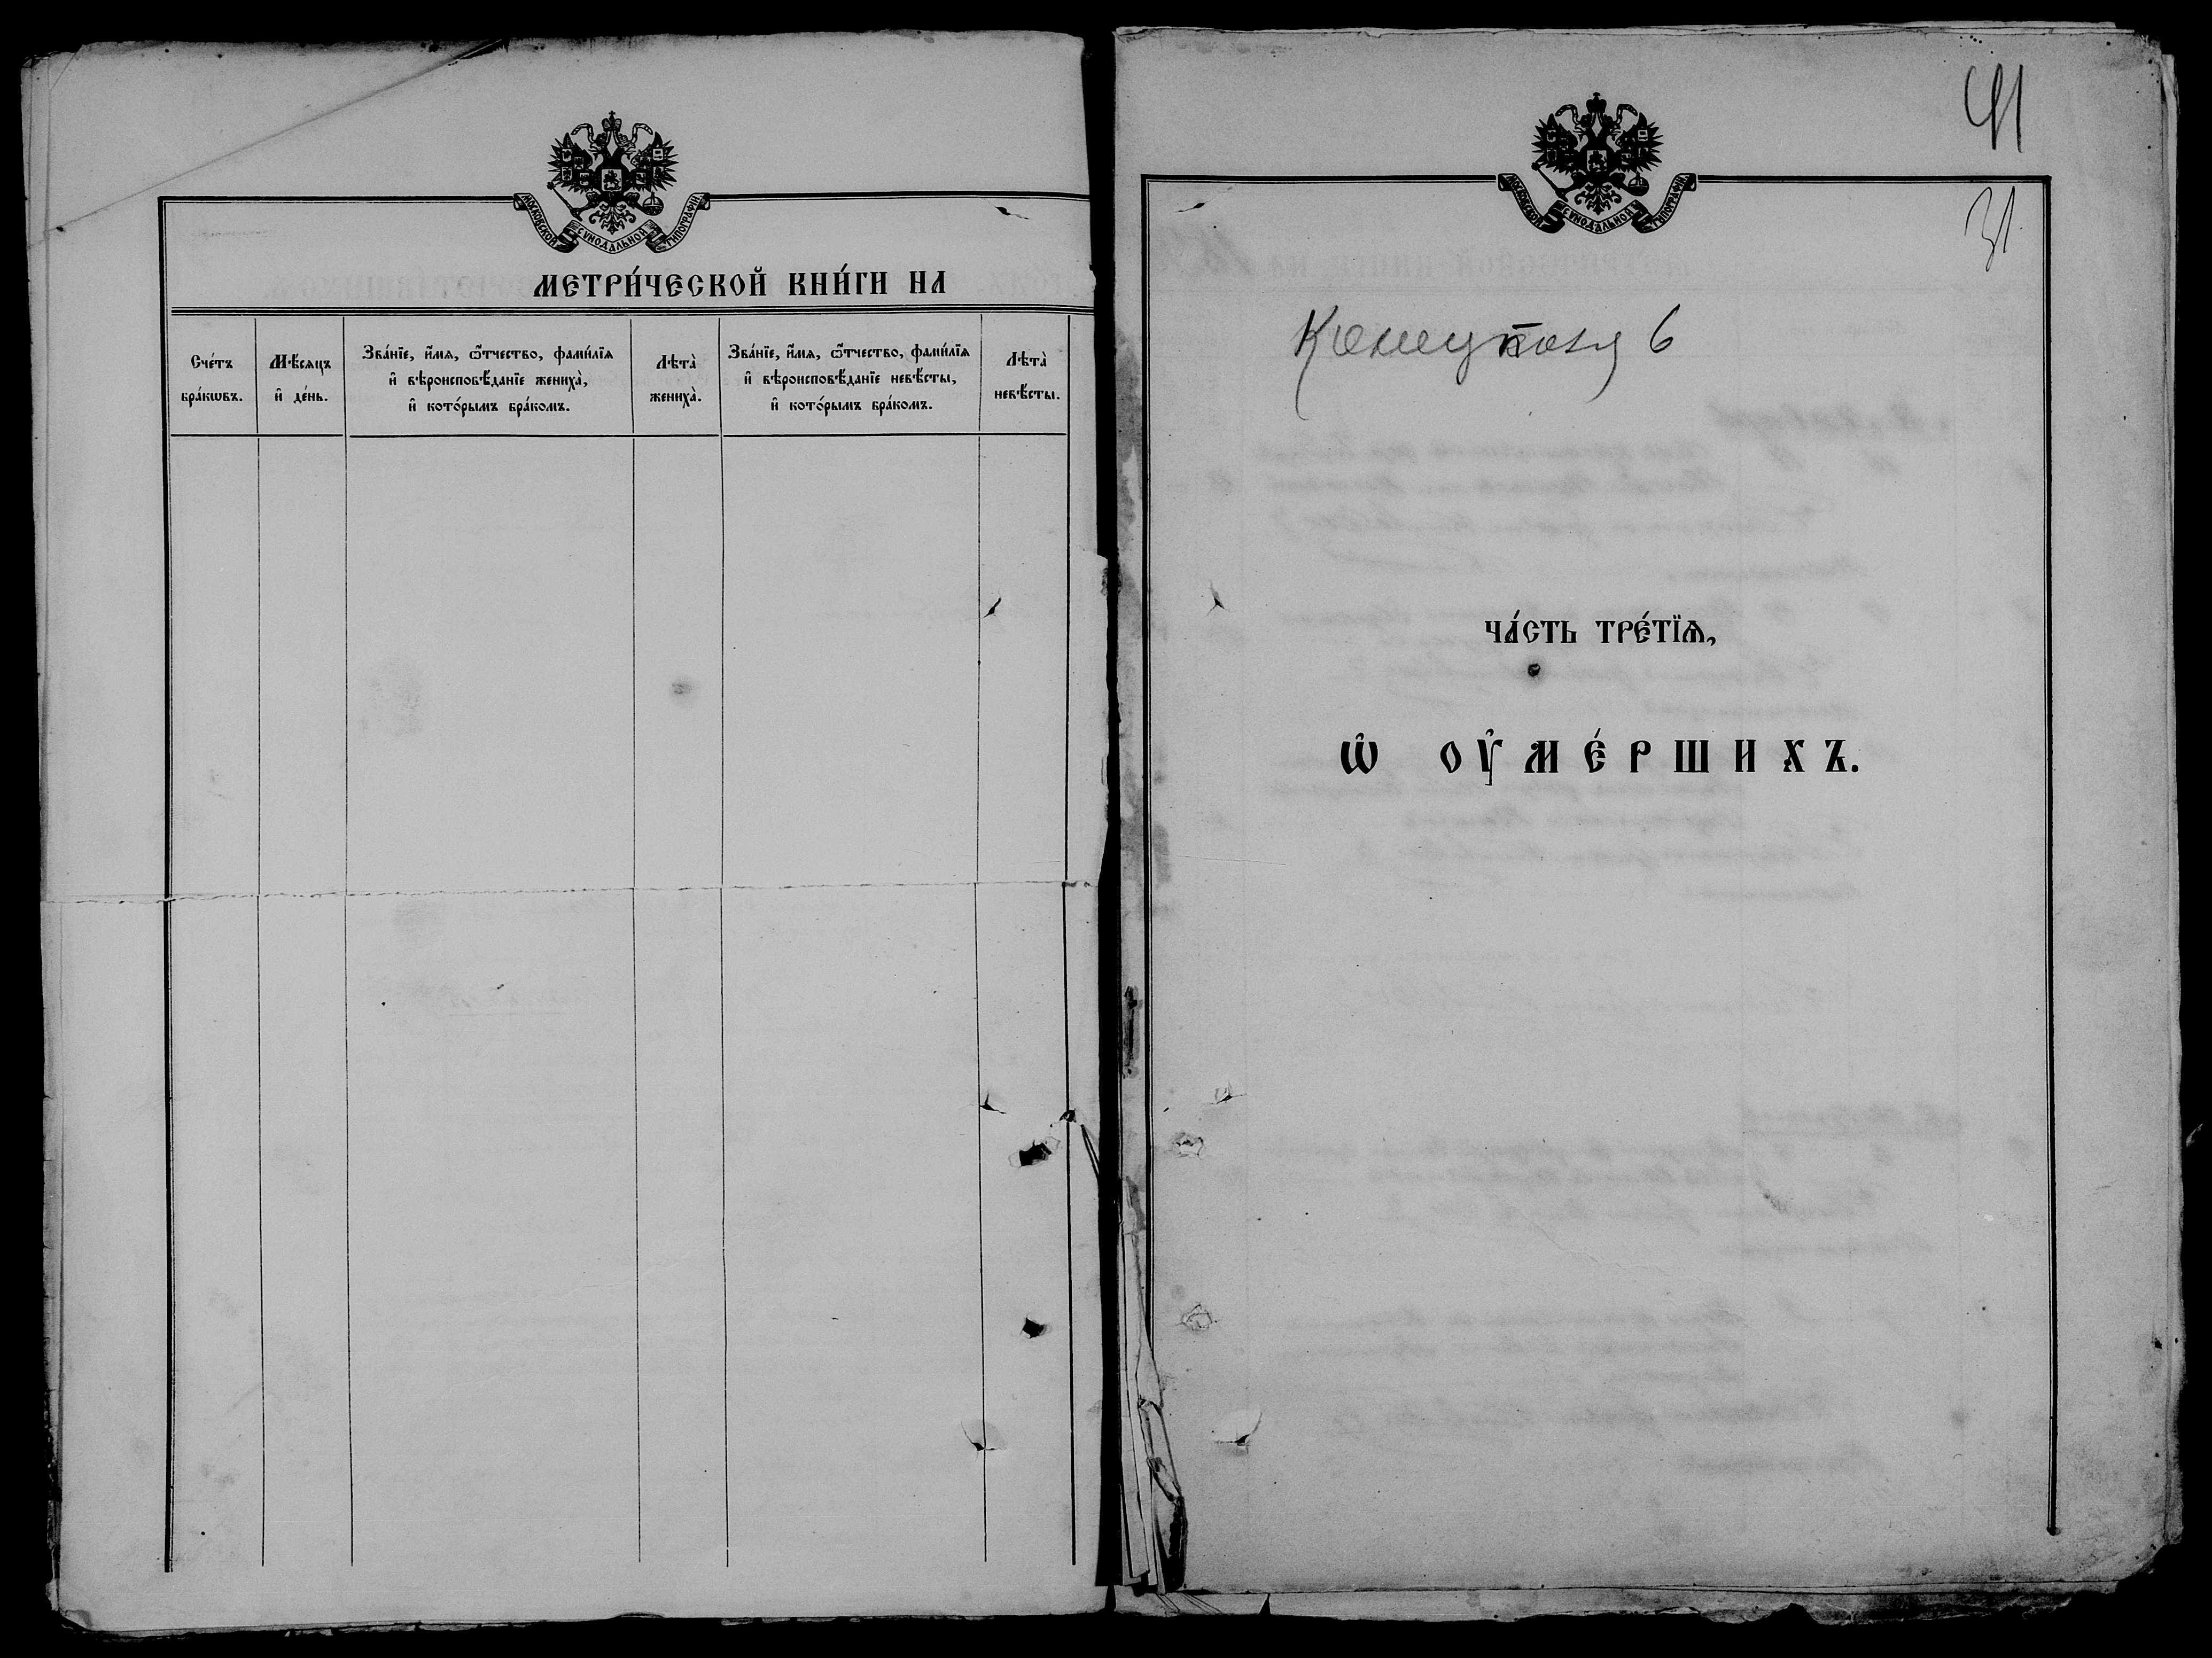 МОСКОВСКОЙ СѴНОДАЛЬНОЙ ТИПОГРАФІИ
МЕТРИ́ЧЕСКОЙ КНИ́ГИ НА
Сче́тъ бра́кѡвъ.
Мѣ́сяцъ и҆ де́нь.
Зва́нїе, и҆́мѧ, ѻ҆́тчество, фами́лїѧ
и҆ вѣроисповѣ́данїе жениха̀,
и҆ кото́рымъ бра́комъ.
Лѣта̀ жениха̀.
Зва́нїе, и҆́мѧ, ѻ҆́тчество, фами́лїѧ
и҆ вѣроисповѣ́данїе невѣ́сты,
и҆ кото́рымъ бра́комъ.
Лѣта̀ невѣ́сты.
41
31
МОСКОВСКОЙ СѴНОДАЛЬНОЙ ТИПОГРАФІИ
6
ЧА́СТЬ ТРЕ́ТЇѦ,
Ѽ ОУ҆МЕ́РШИХЪ.